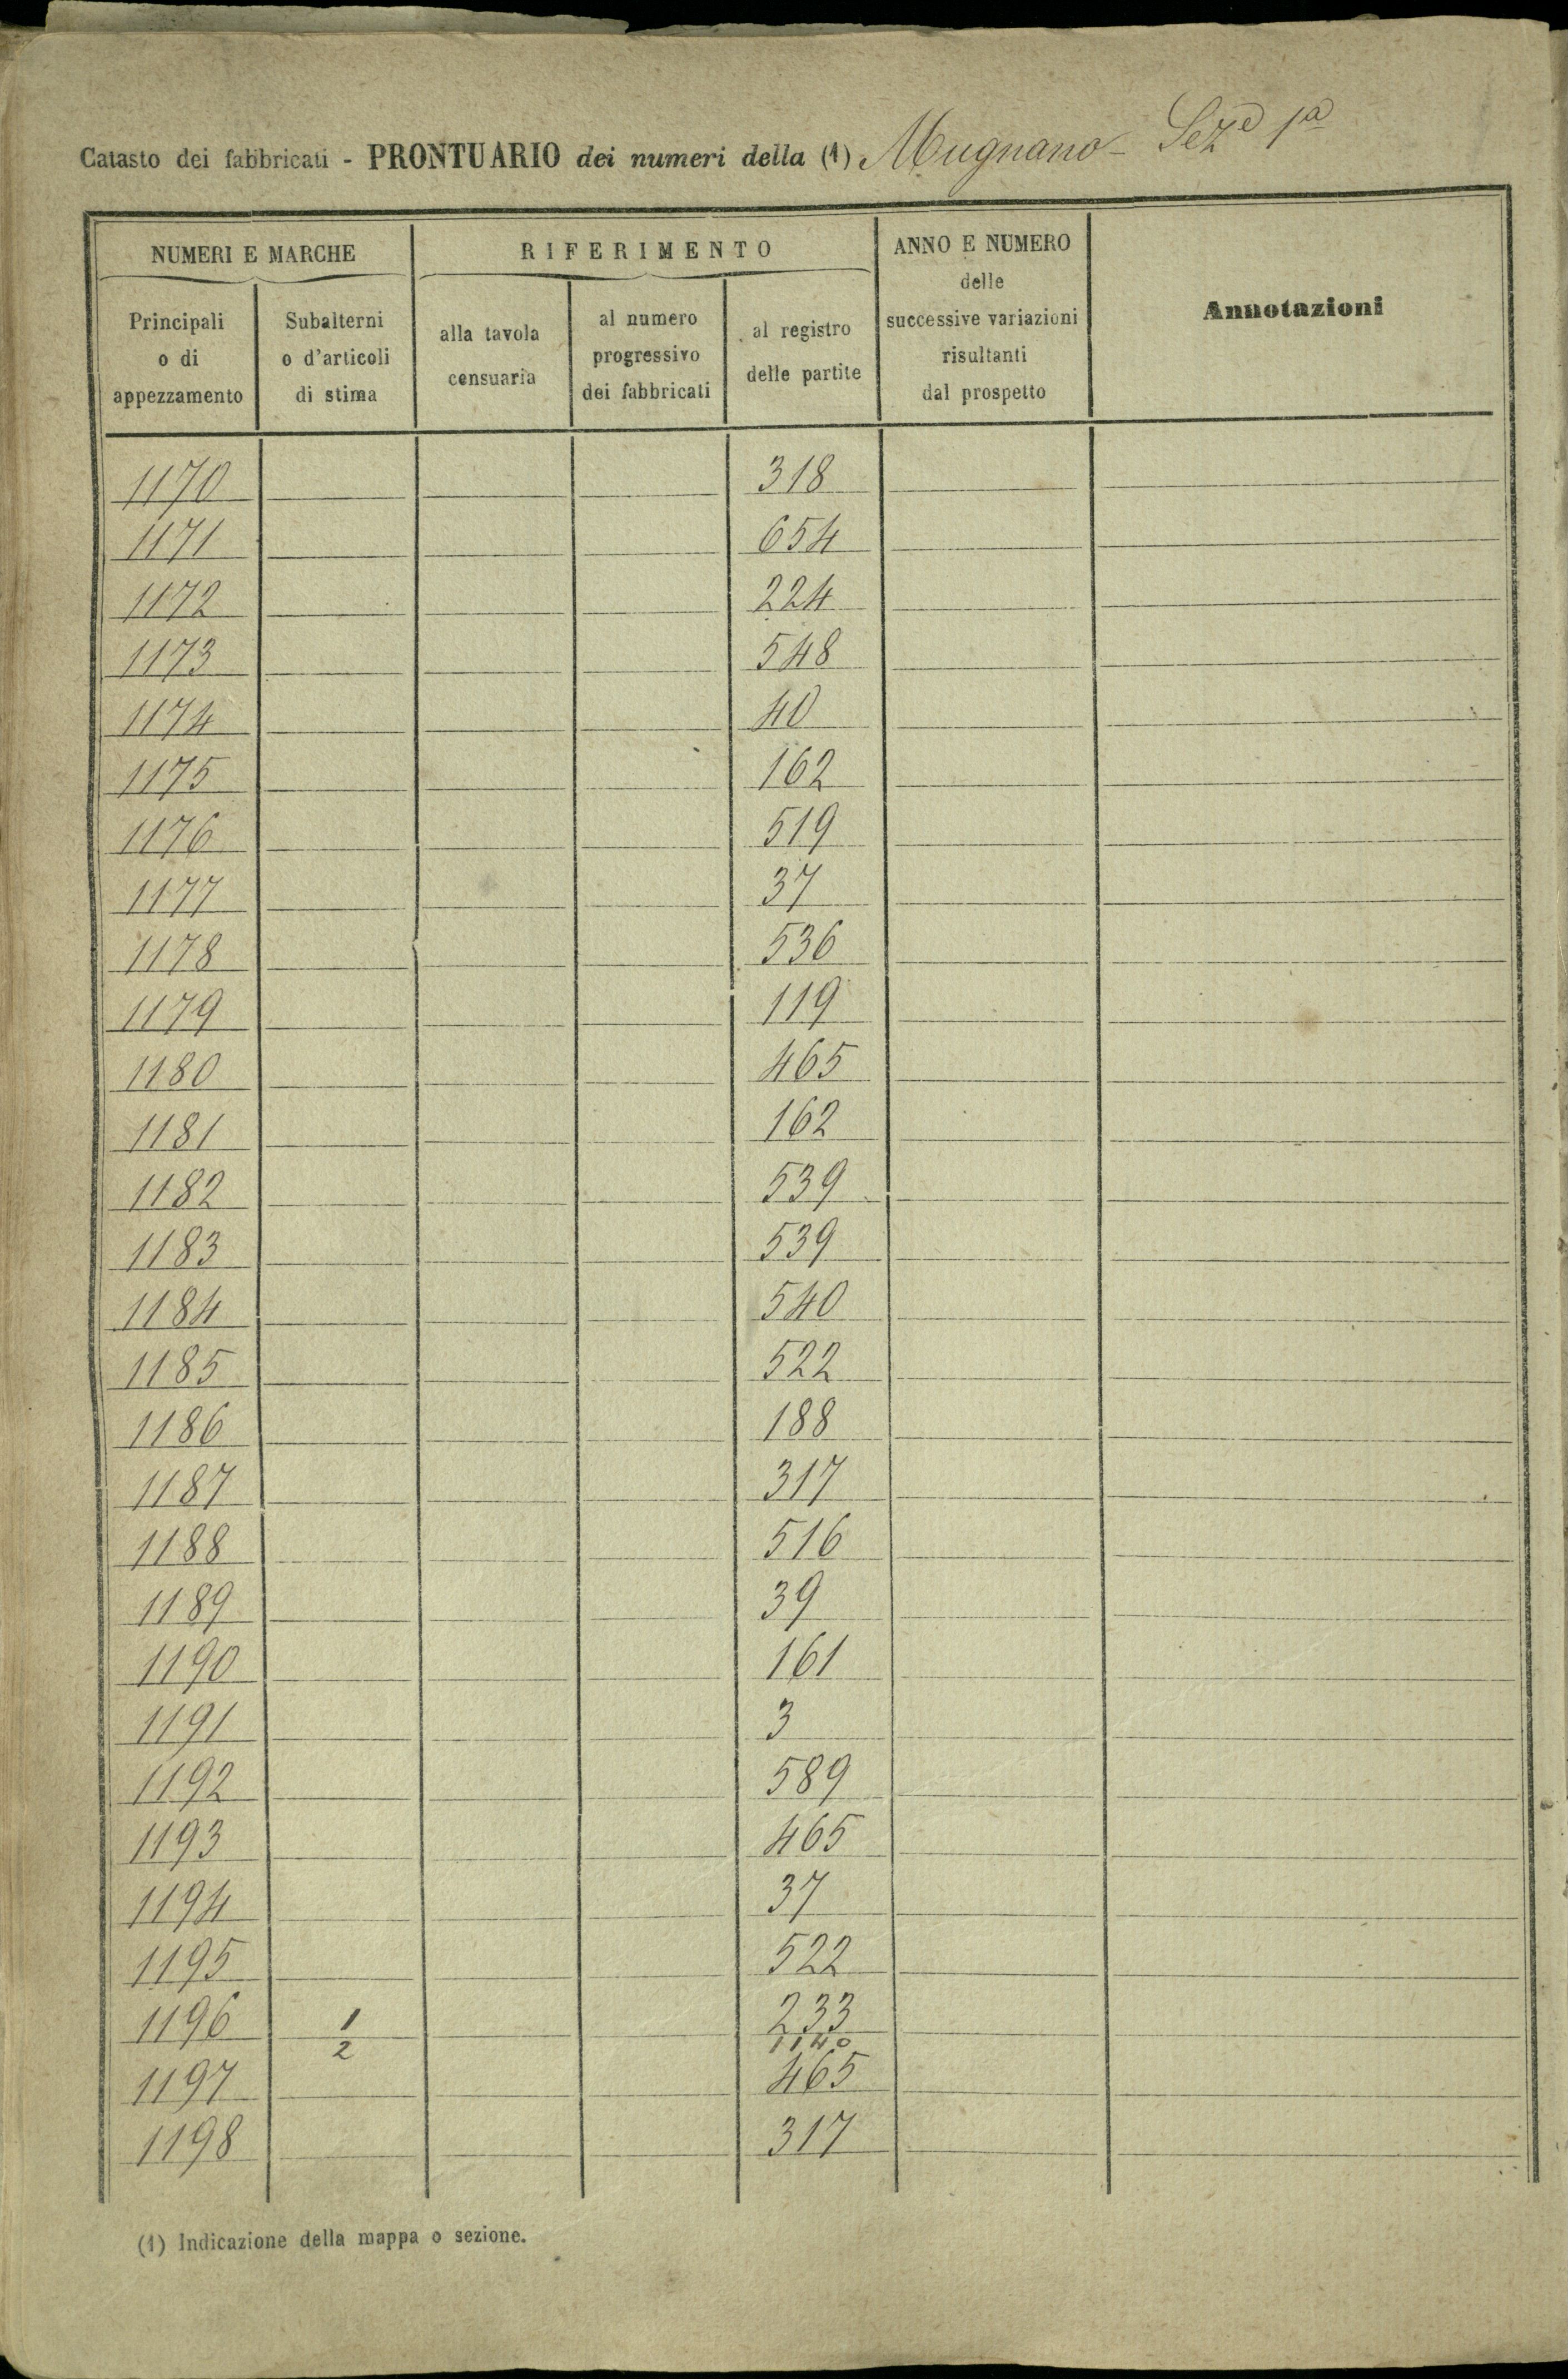 Catasto dei fabbricati - PRONTUARIO dei numeri della (1) Mugnano - Sez.e 1a
NUMERI E MARCHE
RIFERIMENTO
ANNO E NUMERO
delle
successive variazioni
risultanti
dal prospetto
Annotazioni
Principali
o di
appezzamento
Subalterni
o d'articoli
di stima
alla tavola
censuaria
al numero
progressivo
dei fabbricati
al registro
delle partite
1170 318
1171 654
1172 224
1173 548
1174 40
1175 162
1176 519
1177 37
1178 536
1179 119
1180 465
1181 162
1182 539
1183 539
1184 540
1185 522
1186 188
1187 317
1188 516
1189 39
1190 161
1191 3
1192 589
1193 465
1194 37
1195 522
1196 1 233
2 1140
1197 465
1198 317
(1) Indicazione della mappa o sezione.